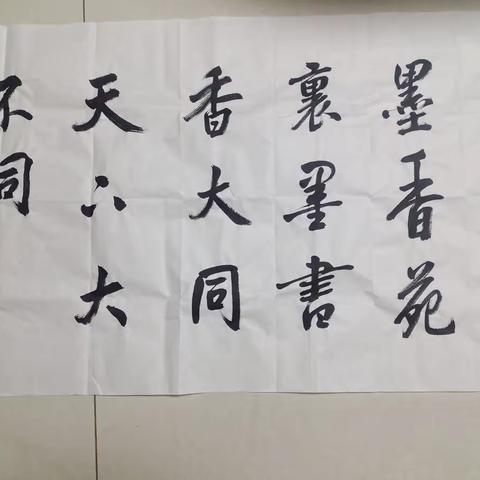 墨香苑
裏墨書
香大同
天下大
不同